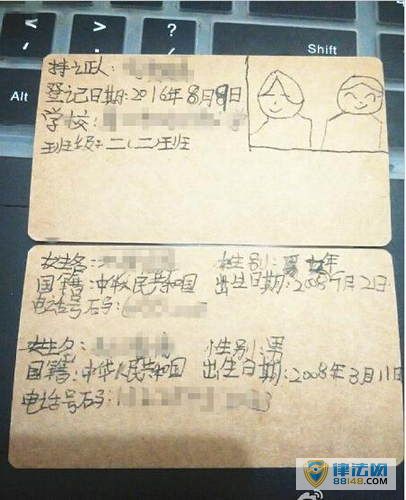 Alt
Shift
持证人:
登记日期:2016年8月9日
学校:
班级:二(二)班
姓名: 性别:女
国籍:中华人民共和国 出生日期:2008年7月2日
电话号码:
姓名: 性别:男
国籍:中华人民共和国 出生日期:2008年3月11日
电话号码:
律法网
88148.com